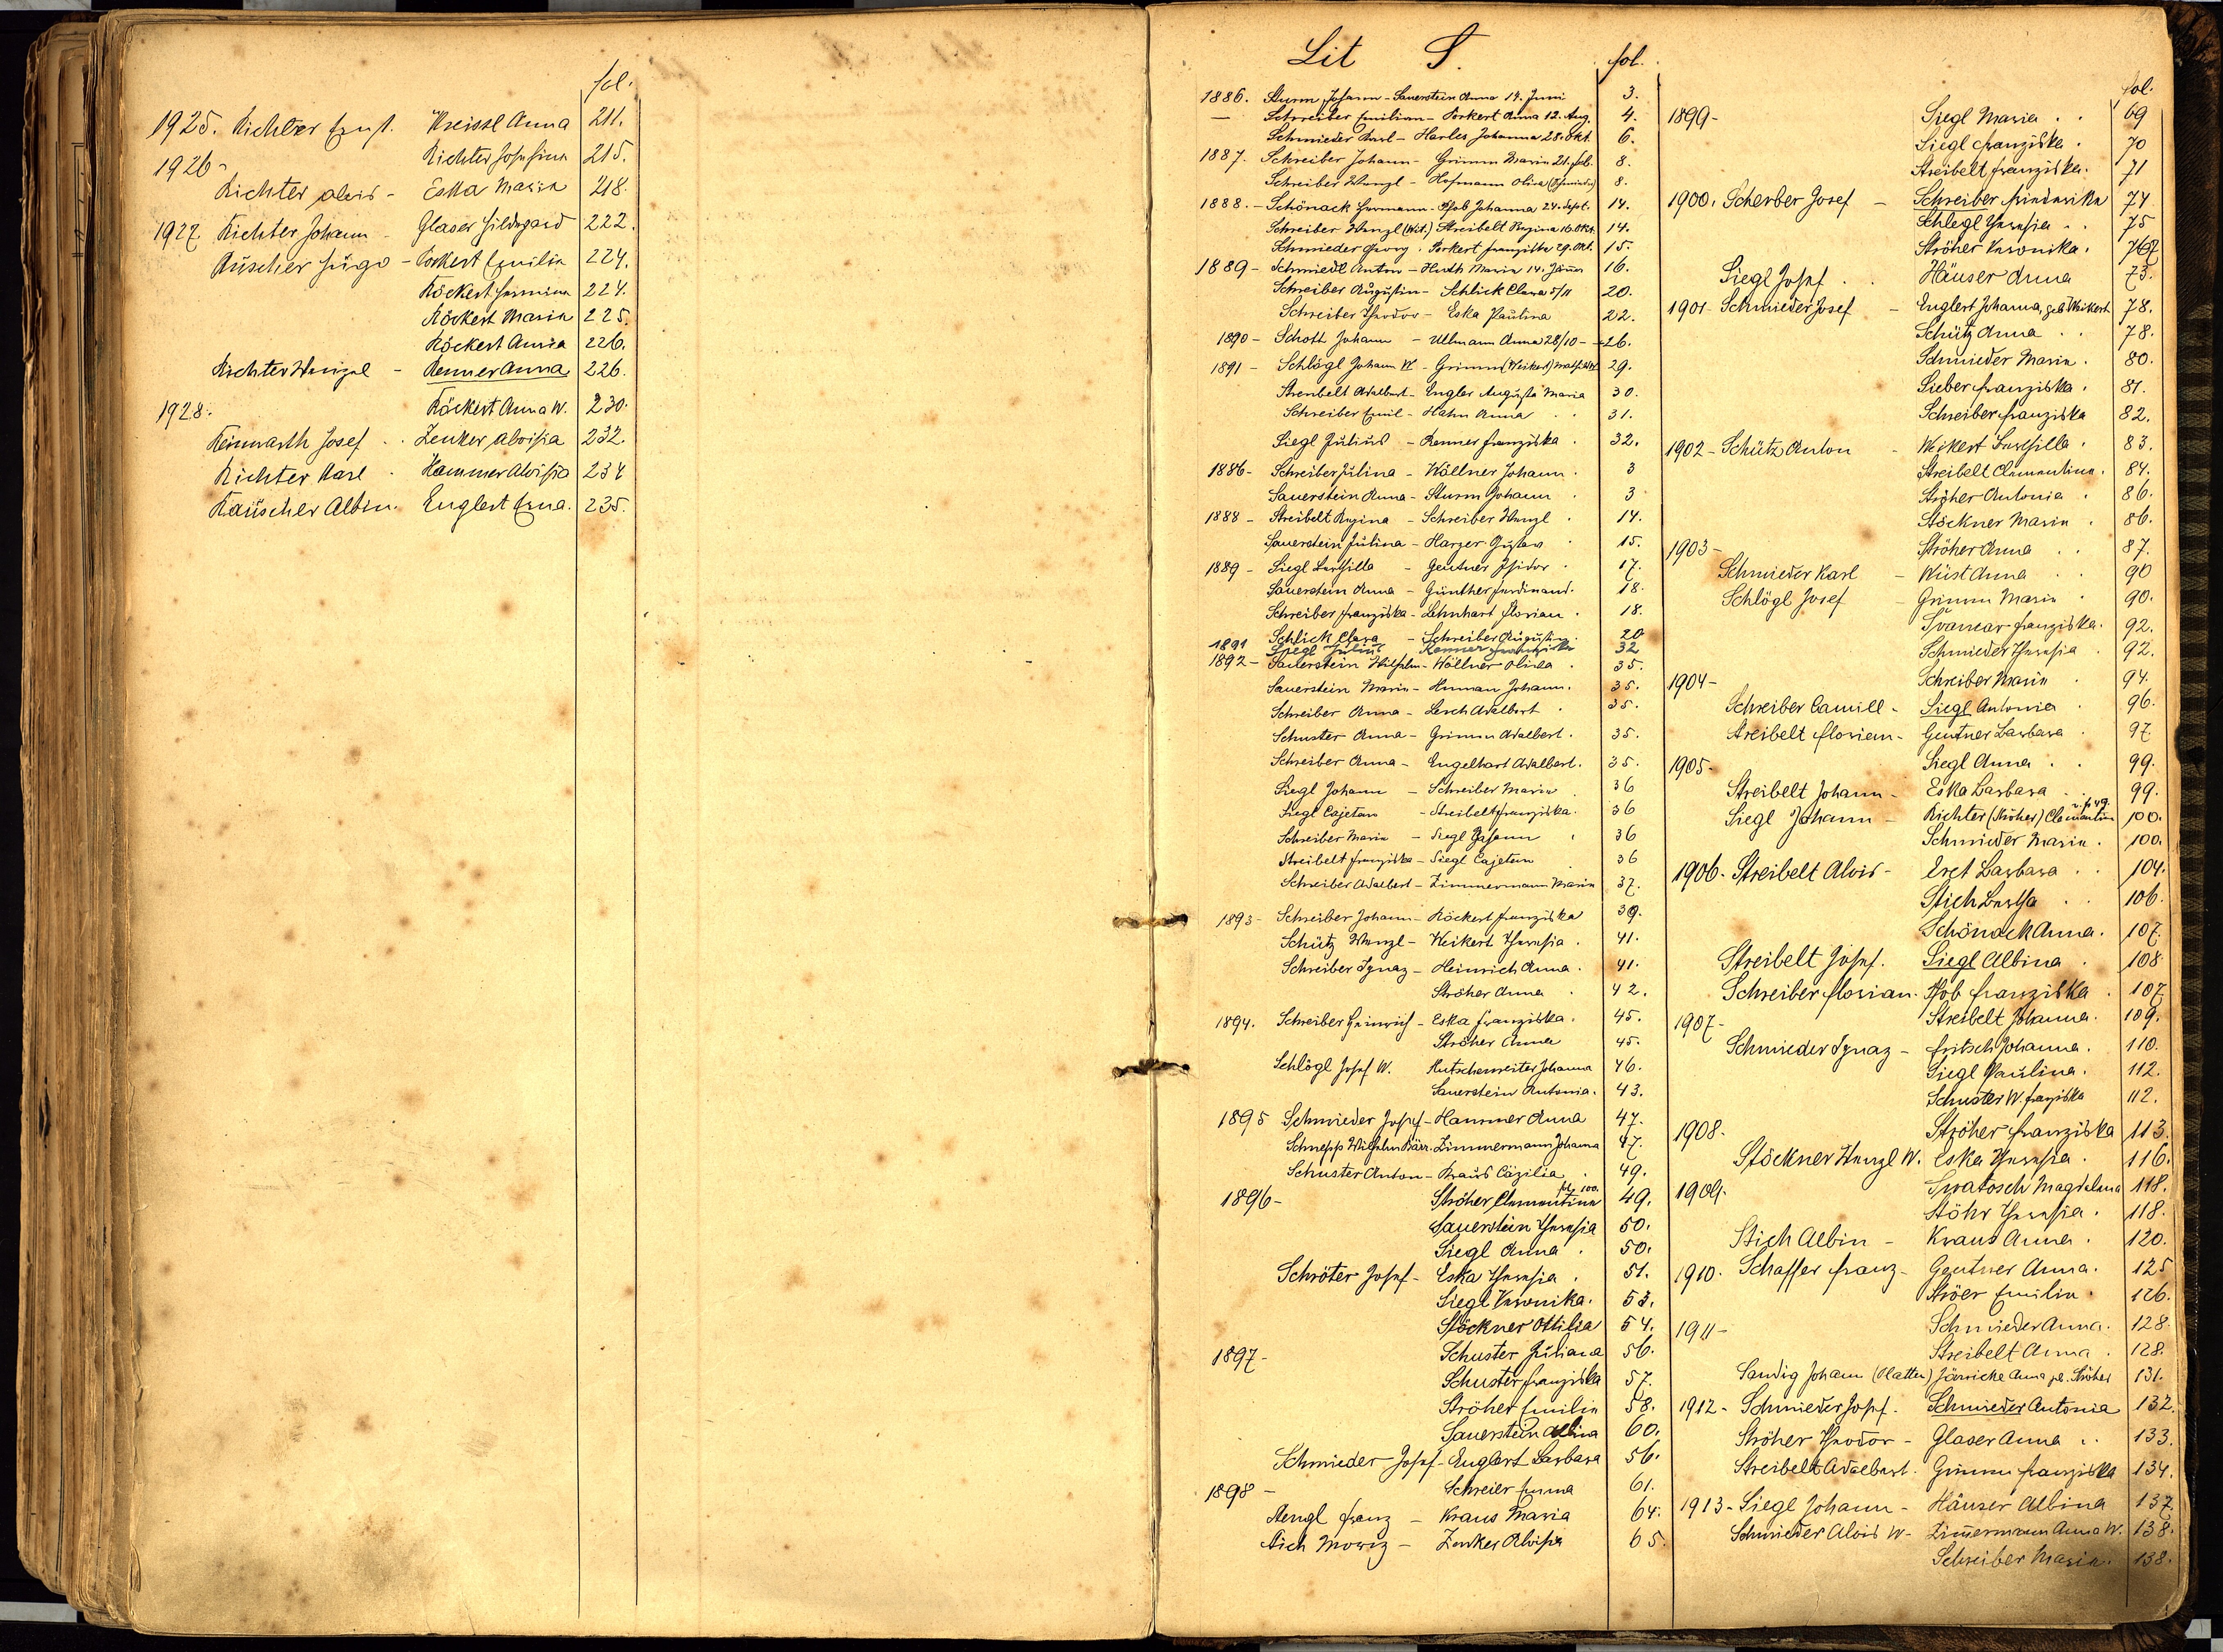 fol.
1925. Richter Ernst. Kreissl Anna 211.
1926 - Richter Josefina 215.
Richter Alois - Eska Maria 218.
1927. Richter Johann - Glaser Hildegard 222.
Rüscher Hugo - Porkert Emilia 224.
Röckert Hermina 224.
Röckert Maria 225.
Röckert Anna 226.
Richter Wenzel - Renner Anna 226.
1928. Röckert Anna W. 230.
Reinwarth Josef . . Zenker Aloisia 232.
Richter Karl - Hammer Aloisia 234
Räuscher Albin. Englert Erna. 235.
Lit S. fol.
1886. Sturm Johann - Sauerstein Anna 14. Juni 3.
— Schreiber Emilian - Porkert Anna 12. Aug. 4.
Schmieder Karl - Harles Johanna 28. Okt. 6.
1887. Schreiber Johann - Grimm Maria 21. Feb. 8.
Schreiber Wenzl - Hofmann Oliva (Schmieder) 8.
1888. - Schönack Hermann - Pfob Johanna 24. Sept. 14.
Schreiber Wenzl (Wit.) Streibelt Regina 16. Okt. 14.
Schmieder Georg . Porkert Franziska 29. Okt. 15.
1889 - Schmiedl Anton - Huth Maria 14. Jänner 16.
Schreiber Augustin - Schlick Clara 5/11 20.
Schreiber Theodor - Eska Paulina 22.
1890 - Schott Johann - Ullmann Anna 28/10 - 26.
1891 - Schlögl Johann W. - Grimm (Weikert) Mathilde 29.
Streibelt Adalbert - Engler Augusta Maria 30.
Schreiber Emil - Hahn Anna . . 31.
Siegl Julius - Renner Franziska . 32.
1886 - Schreiber Julina - Wöllner Johann . 3
Sauerstein Anna - Sturm Johann . 3
1888 - Streibelt Regina - Schreiber Wenzl . 14.
Sauerstein Julina - Harzer Gustav . 15.
1889 - Siegl Bertilla - Gentner Isidor . 17.
Sauerstein Anna - Günther Ferdinand. 18.
Schreiber Franziska - Lehnhart Florian . 18.
Schlick Clara - Schreiber Augustin. 20
1891 Siegl Julius Renner Franziska 32
1892 - Sauerstein Wilhelm - Wöllner Olivia . 35.
Sauerstein Maria - Human Johann. 35.
Schreiber Anna - Lerch Adalbert . 35.
Schuster Anna - Grimm Adalbert . 35.
Schreiber Anna - Engelhart Adalbert. 35.
Siegl Johann - Schreiber Maria . 36
Siegl Cajetan - Streibelt Franziska. 36
Schreiber Maria - Siegl Johann . 36
Streibelt Franziska - Siegl Cajetan . 36
Schreiber Adalbert - Zimmermann Maria 37.
1893 - Schreiber Johann - Röckert Franziska 39.
Schütz Wenzl - Weikert Theresia . 41.
Schreiber Ignaz - Heinrich Anna . 41.
Ströher Anna . 42.
1894. Schreiber Heinrich - Eska Franziska. 45.
Ströher Anna 45.
Schlögl Josef W. Kutschenreiter Johanna 46.
Sauerstein Antonia. 43.
1895 Schmieder Josef - Hammer Anna 47.
Schnepp Wilhelm Zimmermann Johanna 47.
Schuster Anton - Kraus Cäzilia . 49.
1896 - Ströher Clementine fol. 100. 49.
Sauerstein Theresia 50.
Siegl Anna . 50.
Schröter Josef - Eska Theresia . 51.
Siegl Veronika. 53.
Stöckner Ottilia 54.
1897 - Schuster Juliana 56.
Schuster Franziska 57.
Ströher Emilia 58.
Sauerstein Albina 60.
Schmieder Josef - Englert Barbara 56.
1898 - Schreier Emma 61.
Stengl Franz - Kraus Maria 64.
Stich Moriz - Zenker Aloisia 65.
fol.
1899 - Siegl Maria . . 69
Siegl Franziska . 70
Streibelt Franziska. 71
1900. Scherber Josef - Schreiber Friederika 74
Schlegl Theresia . . 75
Ströher Veronika. 76
Siegl Josef . . Häuser Anna 73.
1901 - Schmieder Josef - Englert Johanna, geb Weikert 78.
Schütz Anna . . 78.
Schmieder Maria . 80.
Sieber Franziska . 81.
Schreiber Franziska 82.
1902 - Schütz Anton - Weikert Bertilla . 83.
Streibelt Clementina. 84.
Ströher Antonia . 86.
Stöckner Maria . 86.
1903 - Ströher Anna . . 87.
Schmieder Karl - Wüst Anna . . 90
Schlögl Josef - Grimm Maria . 90.
Svamar Franziska. 92.
Schmieder Theresia . 92.
1904 - Schreiber Maria . 94.
Schreiber Camill - Siegl Antonia . 96.
Streibelt Florian - Gentner Barbara . 97.
1905 - Siegl Anna . . 99.
Streibelt Johann - Eska Barbara . . 99.
Siegl Johann - Richter (Ströher) Clementine v. f. 49. 100.
Schmieder Maria . 100.
1906 - Streibelt Alois - Eret Barbara . . 104.
Stich Bertha . . 106.
Schönack Anna . 107.
Streibelt Josef. Siegl Albina . 108
Schreiber Florian. Pfob Franziska . 107
1907 - Streibelt Johanna. 109.
Schmieder Ignaz - Fritsch Johanna. 110.
Siegl Paulina. 112.
Schuster W. Franziska 112.
1908. Ströher Franziska 113.
Stöckner Wenzl W. Eska Theresia . 116.
1909. Swatosch Magdalena 118.
Stöhr Theresia . 118.
Stich Albin - Kraus Anna . 120.
1910. Schaffer Franz - Gentner Anna. 125
Ströer Emilia . 126.
1911 - Schmieder Anna. 128.
Streibelt Anna . 128.
Sandig Johann (Platten) Järnicke Anna geb. Ströher 131.
1912 - Schmieder Josef. Schmieder Antonia 132.
Ströher Theodor - Glaser Anna . . 133.
Streibelt Adalbert. Grimm Franziska 134.
1913 - Siegl Johann - Häuser Albina 137.
Schmieder Alois W - Zimmermann Anna W. 138.
Schreiber Maria. 138.